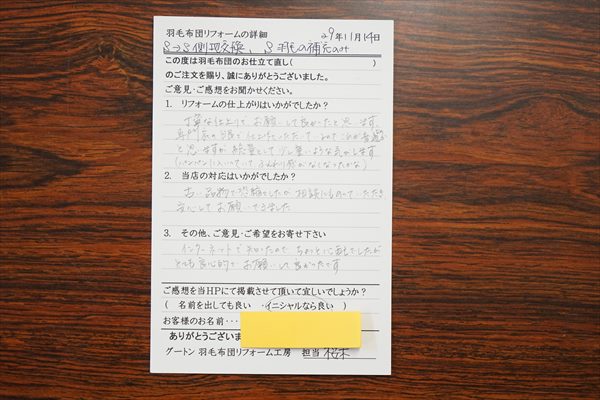 羽毛布団リフォームの詳細
29年11月14日
S→S側地交換、S羽毛の補充
この度は羽毛布団のお仕立て直し(　　　　)
のご注文を賜り、誠にありがとうございました。
ご意見・ご感想をお聞かせください。
1. リフォームの仕上がりはいかがでしたか？
丁寧な仕上りで、お願いして良かったと思います。
と思いますが
2. 当店の対応はいかがでしたか？
古い品物で恐縮でしたが 相談にものっていただき
安心してお願いできました
3. その他、ご意見・ご希望をお寄せ下さい
インターネットで知ったので ちょっと心配でしたが
とても良心的で お願いして良かったです
ご感想を当HPにて掲載させて頂いて宜しいでしょうか？
( 名前を出しても良い ・イニシャルなら良い )
お客様のお名前・・・
ありがとうございま
グートン 羽毛布団リフォーム工房 担当 桜木